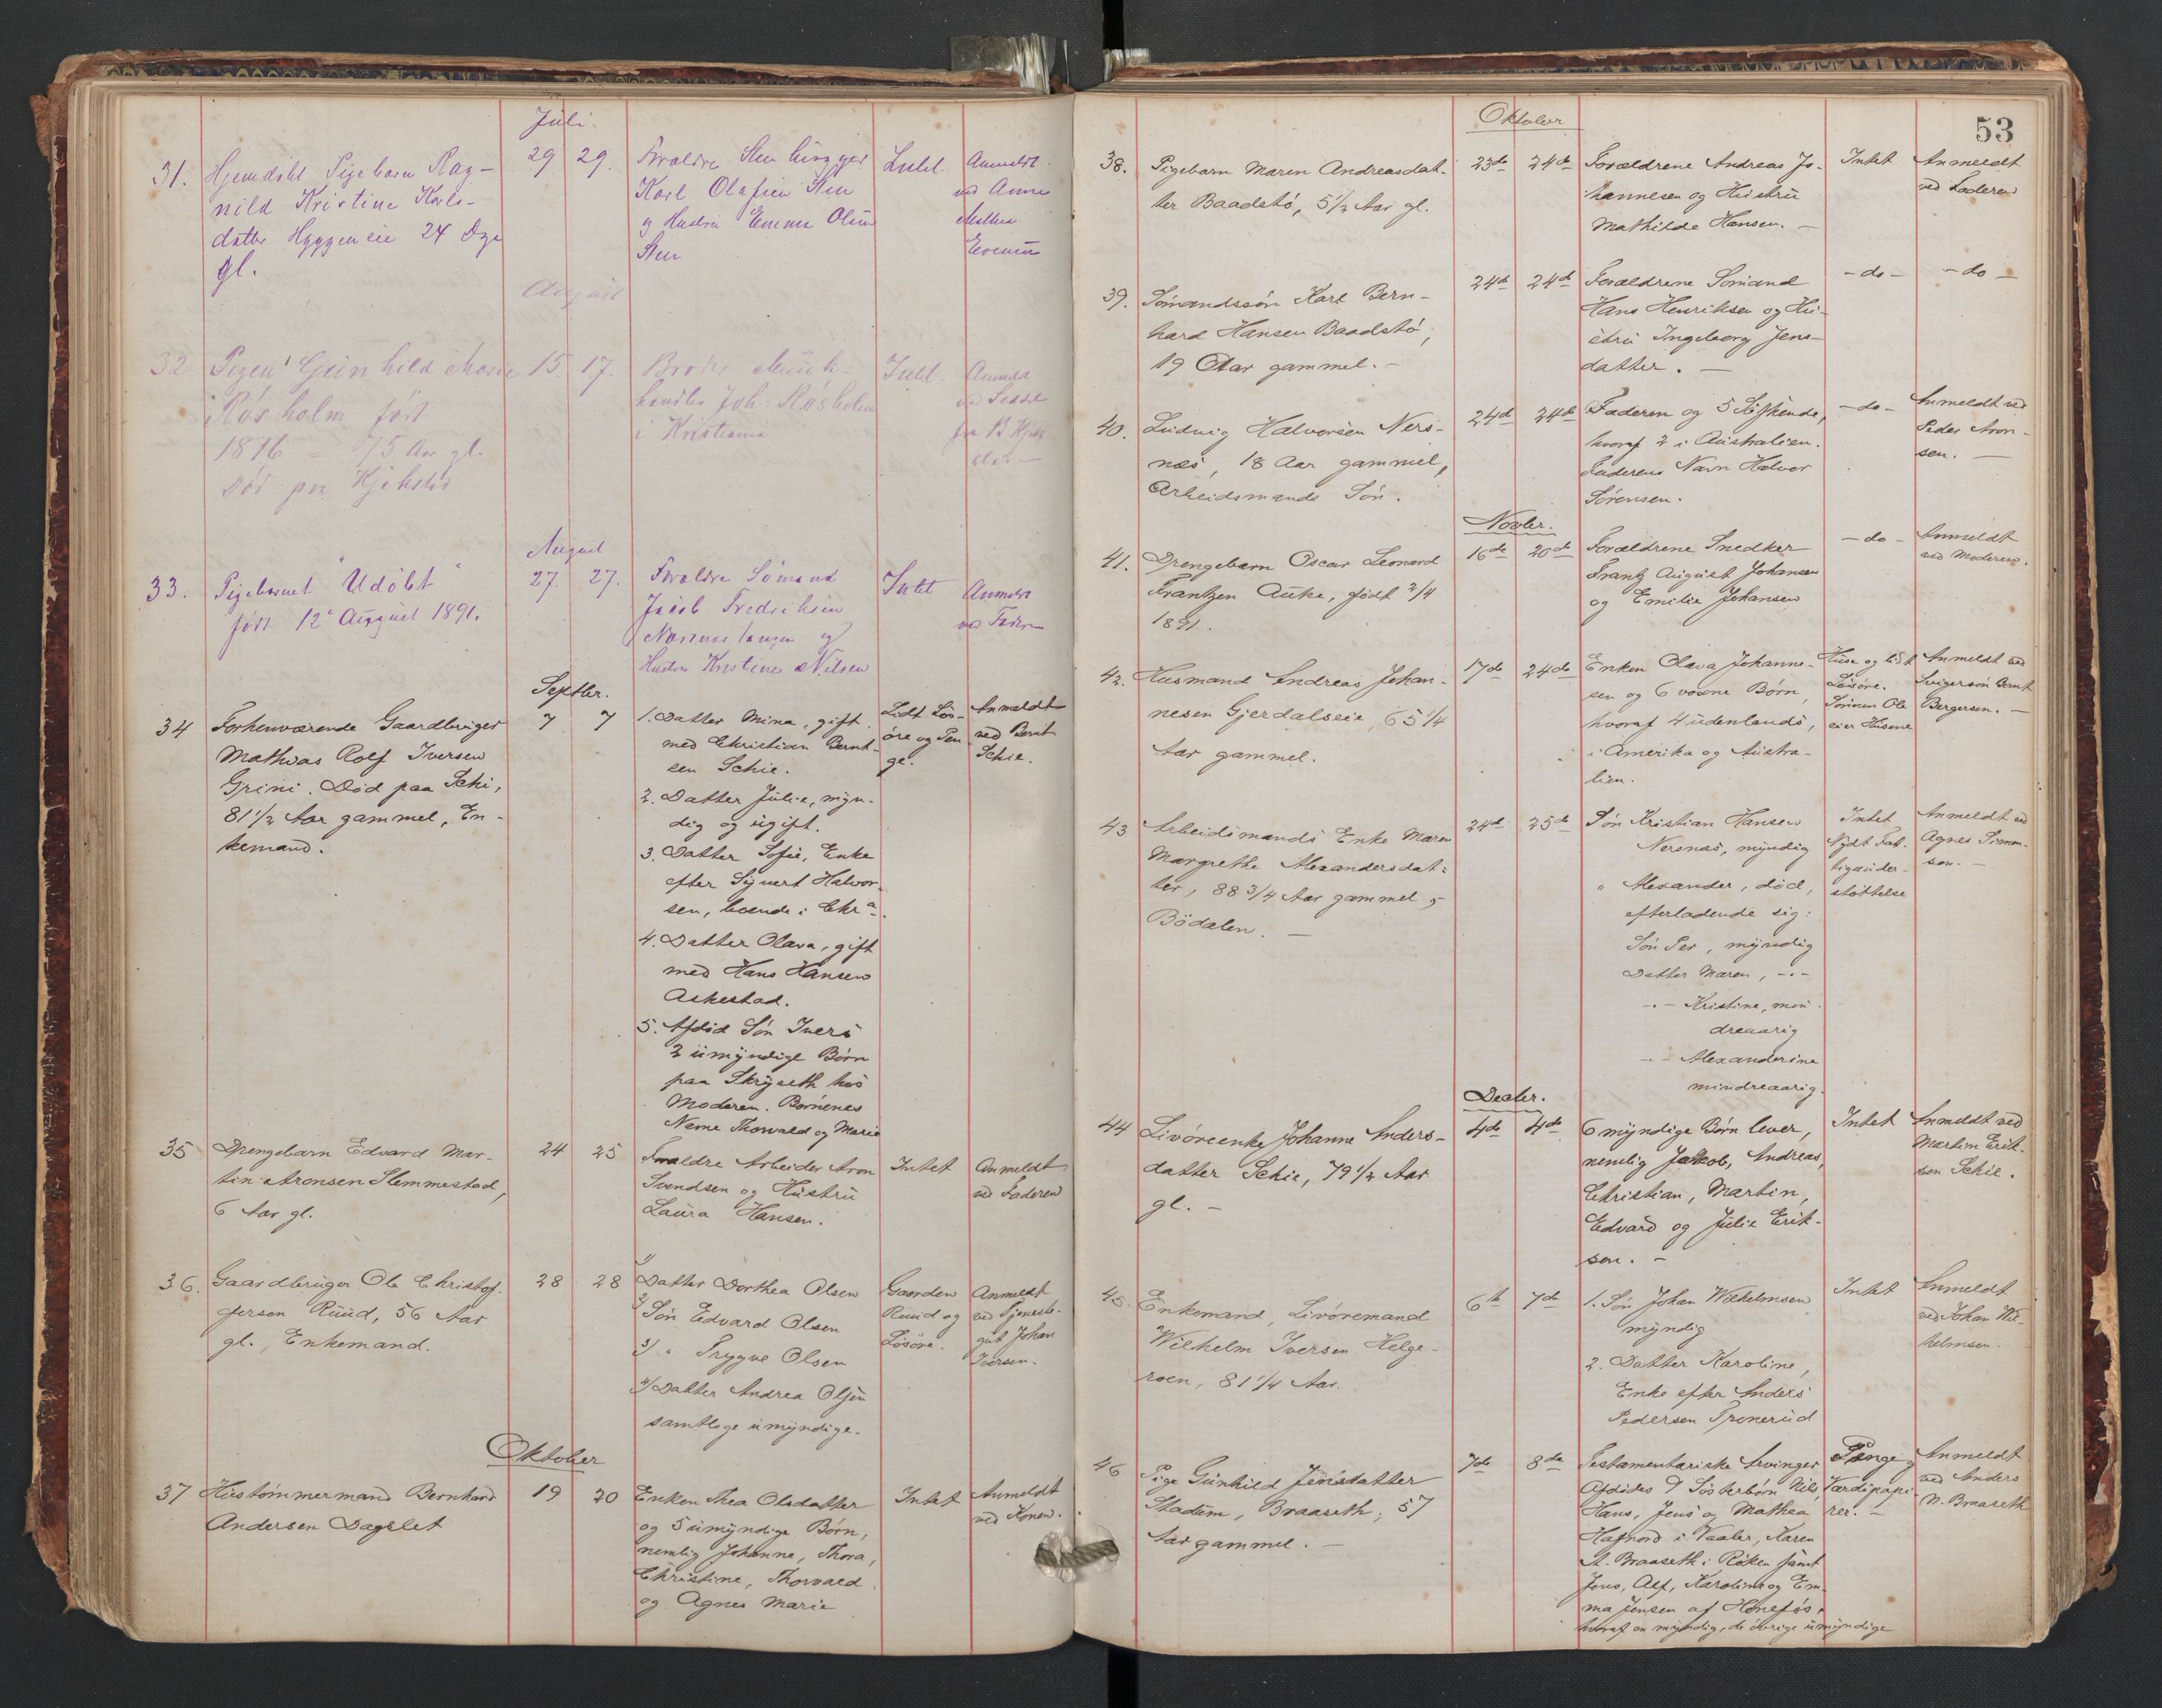 Juli.
31. Hjemdøbt Pigebarn Rag-
nild Kristine Karls-
datter Hyggen eie 24 Dge
gl.
29 29.
Forældre
Karl Olafsen
og Hustru Emma
Intet.
Anmeldt
ved Anne
August
32 Pigen Gunhild Marie
Røsholm født
1816 - 75 Aar gl.
død paa
15. 17.
Broder
handler Joh. Røsholm
i Kristiania
Intet.
August
33. Pigebarnet "Udøbt"
født 12te August 1891.
27. 27.
Forældre Sømand
Jacob Fredriksen
Nærsnestangen og
Hustru Kristine Nilsen
Intet
Anmeldt
ved Fader
Septbr.
34 Forhenværende Gaardbruger
Mathias Rolf Iversen
Grini. Død paa Schi,
81 1/2 Aar gammel, En-
kemand.
7 7
1. Datter Mina, gift
med Christian Bernt-
sen Schie.
2. Datter Julie, myn-
dig og ugift.
3. Datter Sofie, Enke
efter Sigvert Halvor-
sen, boende i Chra.
4. Datter Olava, gift
med Hans Hansen
Askestad.
5. Afdød Søn Ivers
2 umyndige Børn
paa Skryseth hos
Moderen. Børnenes
Navne Thorvald og Marie
Lidt Løs-
øre og Pen-
ge.
Anmeldt
ved Bernt
Schie.
35 Drengebarn Edvard Mar-
tin Aronsen Slemmestad,
6 Aar gl.
24 25
Forældre Arbeider Aron
Svendsen og Hustru
Laura Hansen.
Intet
Anmeldt
ved Faderen
36. Gaardbruger Ole Christof-
fersen Ruud, 56 Aar
gl., Enkemand.
28 28
1/ Datter Dorthea Olsen
2/ Søn Edvard Olsen
3/ " Trygve Olsen
4/ Datter Andrea Olsen
samtlige umyndige.
Gaarden
Ruud og
Løsøre.
Anmeldt
ved Tjeneste-
gut Johan
Iversen.
Oktober
37 Hustømmermand Bernhard
Andersen Dagslet
19 20
Enken Thea Olsdatter
og 5 umyndige Børn,
nemlig Johanne, Thora,
Christine, Thorvald
og Agnes Marie
Intet
Anmeldt
ved Konen.
53
Oktober
38. Pigebarn Maren Andreasdat-
ter Baadstø, 5 1/2 Aar gl.
23de 24de
Forældrene Andreas Jo-
hannesen og Hustru
Mathilde Hansen. -
Intet
Anmeldt
ved Faderen
39. Sømandssøn Karl Bern-
hard Hansen Baadstø,
19 Aar gammel. -
24de 24de
Forældrene Sømand
Hans Henriksen og Hu-
stru Ingeborg Jens-
datter. -
- do -
- do -
40. Ludvig Halvorsen Ners-
næs, 18 Aar gammel,
Arbeidsmands Søn.
24de 24de
Faderen og 5 Søskende,
hvoraf 2 i Australien.
Faderens Navn Halvor
Sørensen.
- do -
Anmeldt ved
Peder Aron-
sen. -
Novbr.
41. Drengebarn Oscar Leonard
Frantzen Auke, født 2/4
1891.
16de 20de
Forældrene Snedker
Frantz August Johansen
og Emilie Johansen
- do -
Anmeldt
ved Moderen.
42. Husmand Andreas Johan-
nesen Gjerdalseie, 65 1/4
Aar gammel.
17de 24de
Enken Olava Johanne-
sen og 6 voxne Børn,
hvoraf 4 udenlands,
i Amerika og Austra-
lien.
Huse og lidt
Løsøre.
Sønnen Ole
eier Husene
Anmeldt ved
Svigersøn Bernt
Bergersen. -
43 Arbeidsmands Enke Maren
Margrethe Alexandersdat-
ter, 88 3/4 Aar gammel,
Bødalen. -
24de 25de
Søn Kristian Hansen
Nersnæs, myndig
" Alexander, død,
efterladende sig:
Søn Per, myndig
Datter Maren, -"-
-"- Kristine, min-
dreaarig
-"- Alexanderine
mindreaarig.
Intet
Nydt Fat-
tigunder-
støttelse
Anmeldt ved
Agnes Simon-
sen. -
Decbr.
44 Livøreenke Johanne Anders-
datter Schie, 79 1/2 Aar
gl. -
4de 4de
6 myndige Børn lever,
nemlig Jakob, Andreas,
Christian, Martin,
Edvard og Julie Erik-
sen. -
Intet
Anmeldt ved
Martin Erik-
sen Schie.
45. Enkemand, Livøremand
Wilhelm Iversen Helge-
roen, 81 1/4 Aar.
6te 7de
1. Søn Johan Wilhelmsen
myndig
2. Datter Karoline,
Enke efter Anders
Pedersen Tronerud
Intet
Anmeldt
ved Johan Wil-
helmsen.
46 Pige Gunhild Jensdatter
Stadum, Braaseth, 57
Aar gammel. -
7de 8de
Testamentariske Arvinger
Afdødes 9 Søsterbørn Nils,
Hans, Jens og Mathea
Hafnord i Vaaler, Karen
A. Braaseth i Røken samt
Jens, Alf, Karoline og Em-
ma Jensen af Hønefos,
hvoraf en myndig, de øvrige umyndige
Penge og
Værdipapi-
rer. -
Anmeldt
ved Anders
N. Braaseth